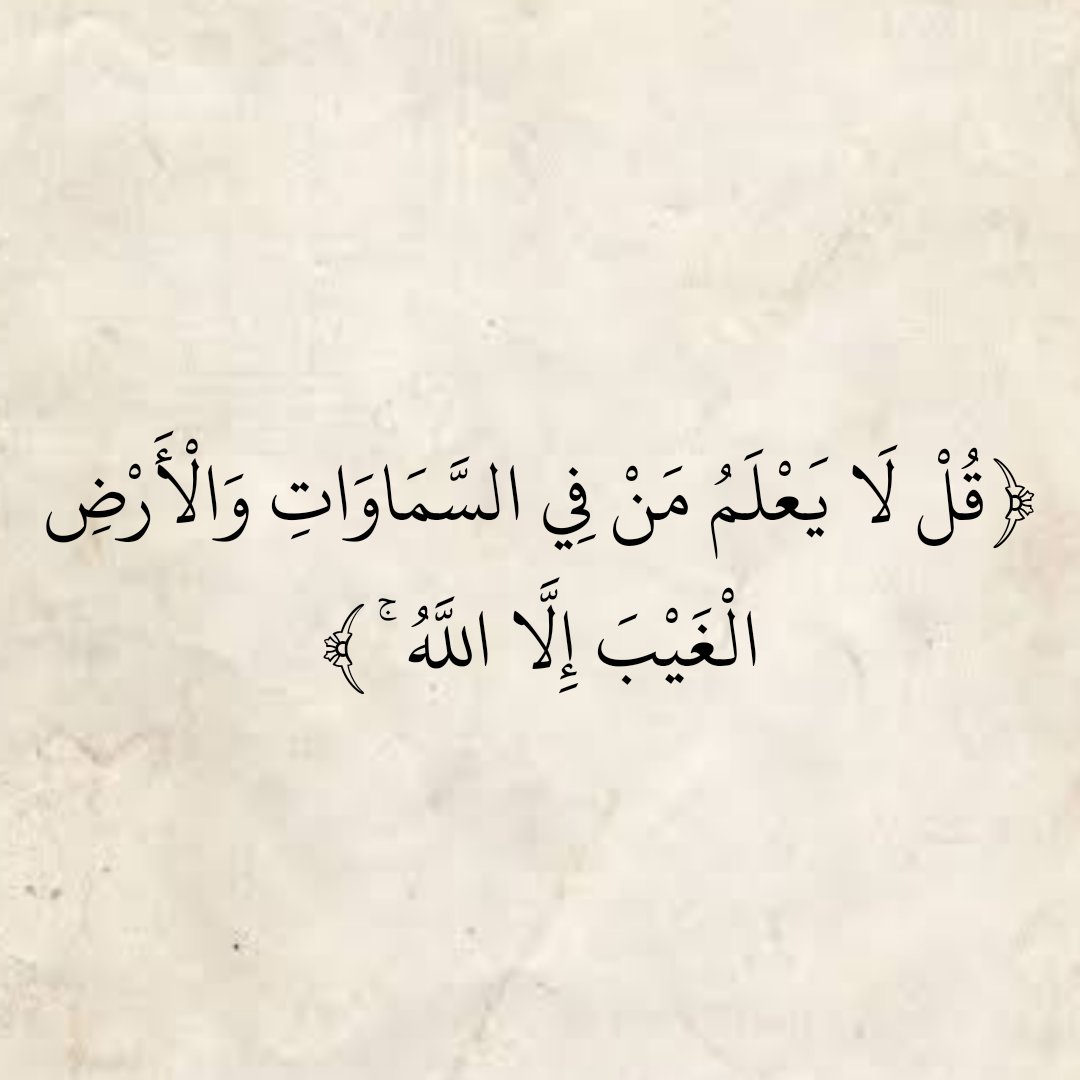 ﴿قُلْ لَا يَعْلَمُ مَنْ فِي السَّمَاوَاتِ وَالْأَرْضِ
الْغَيْبَ إِلَّا اللَّهُ ۚ ﴾